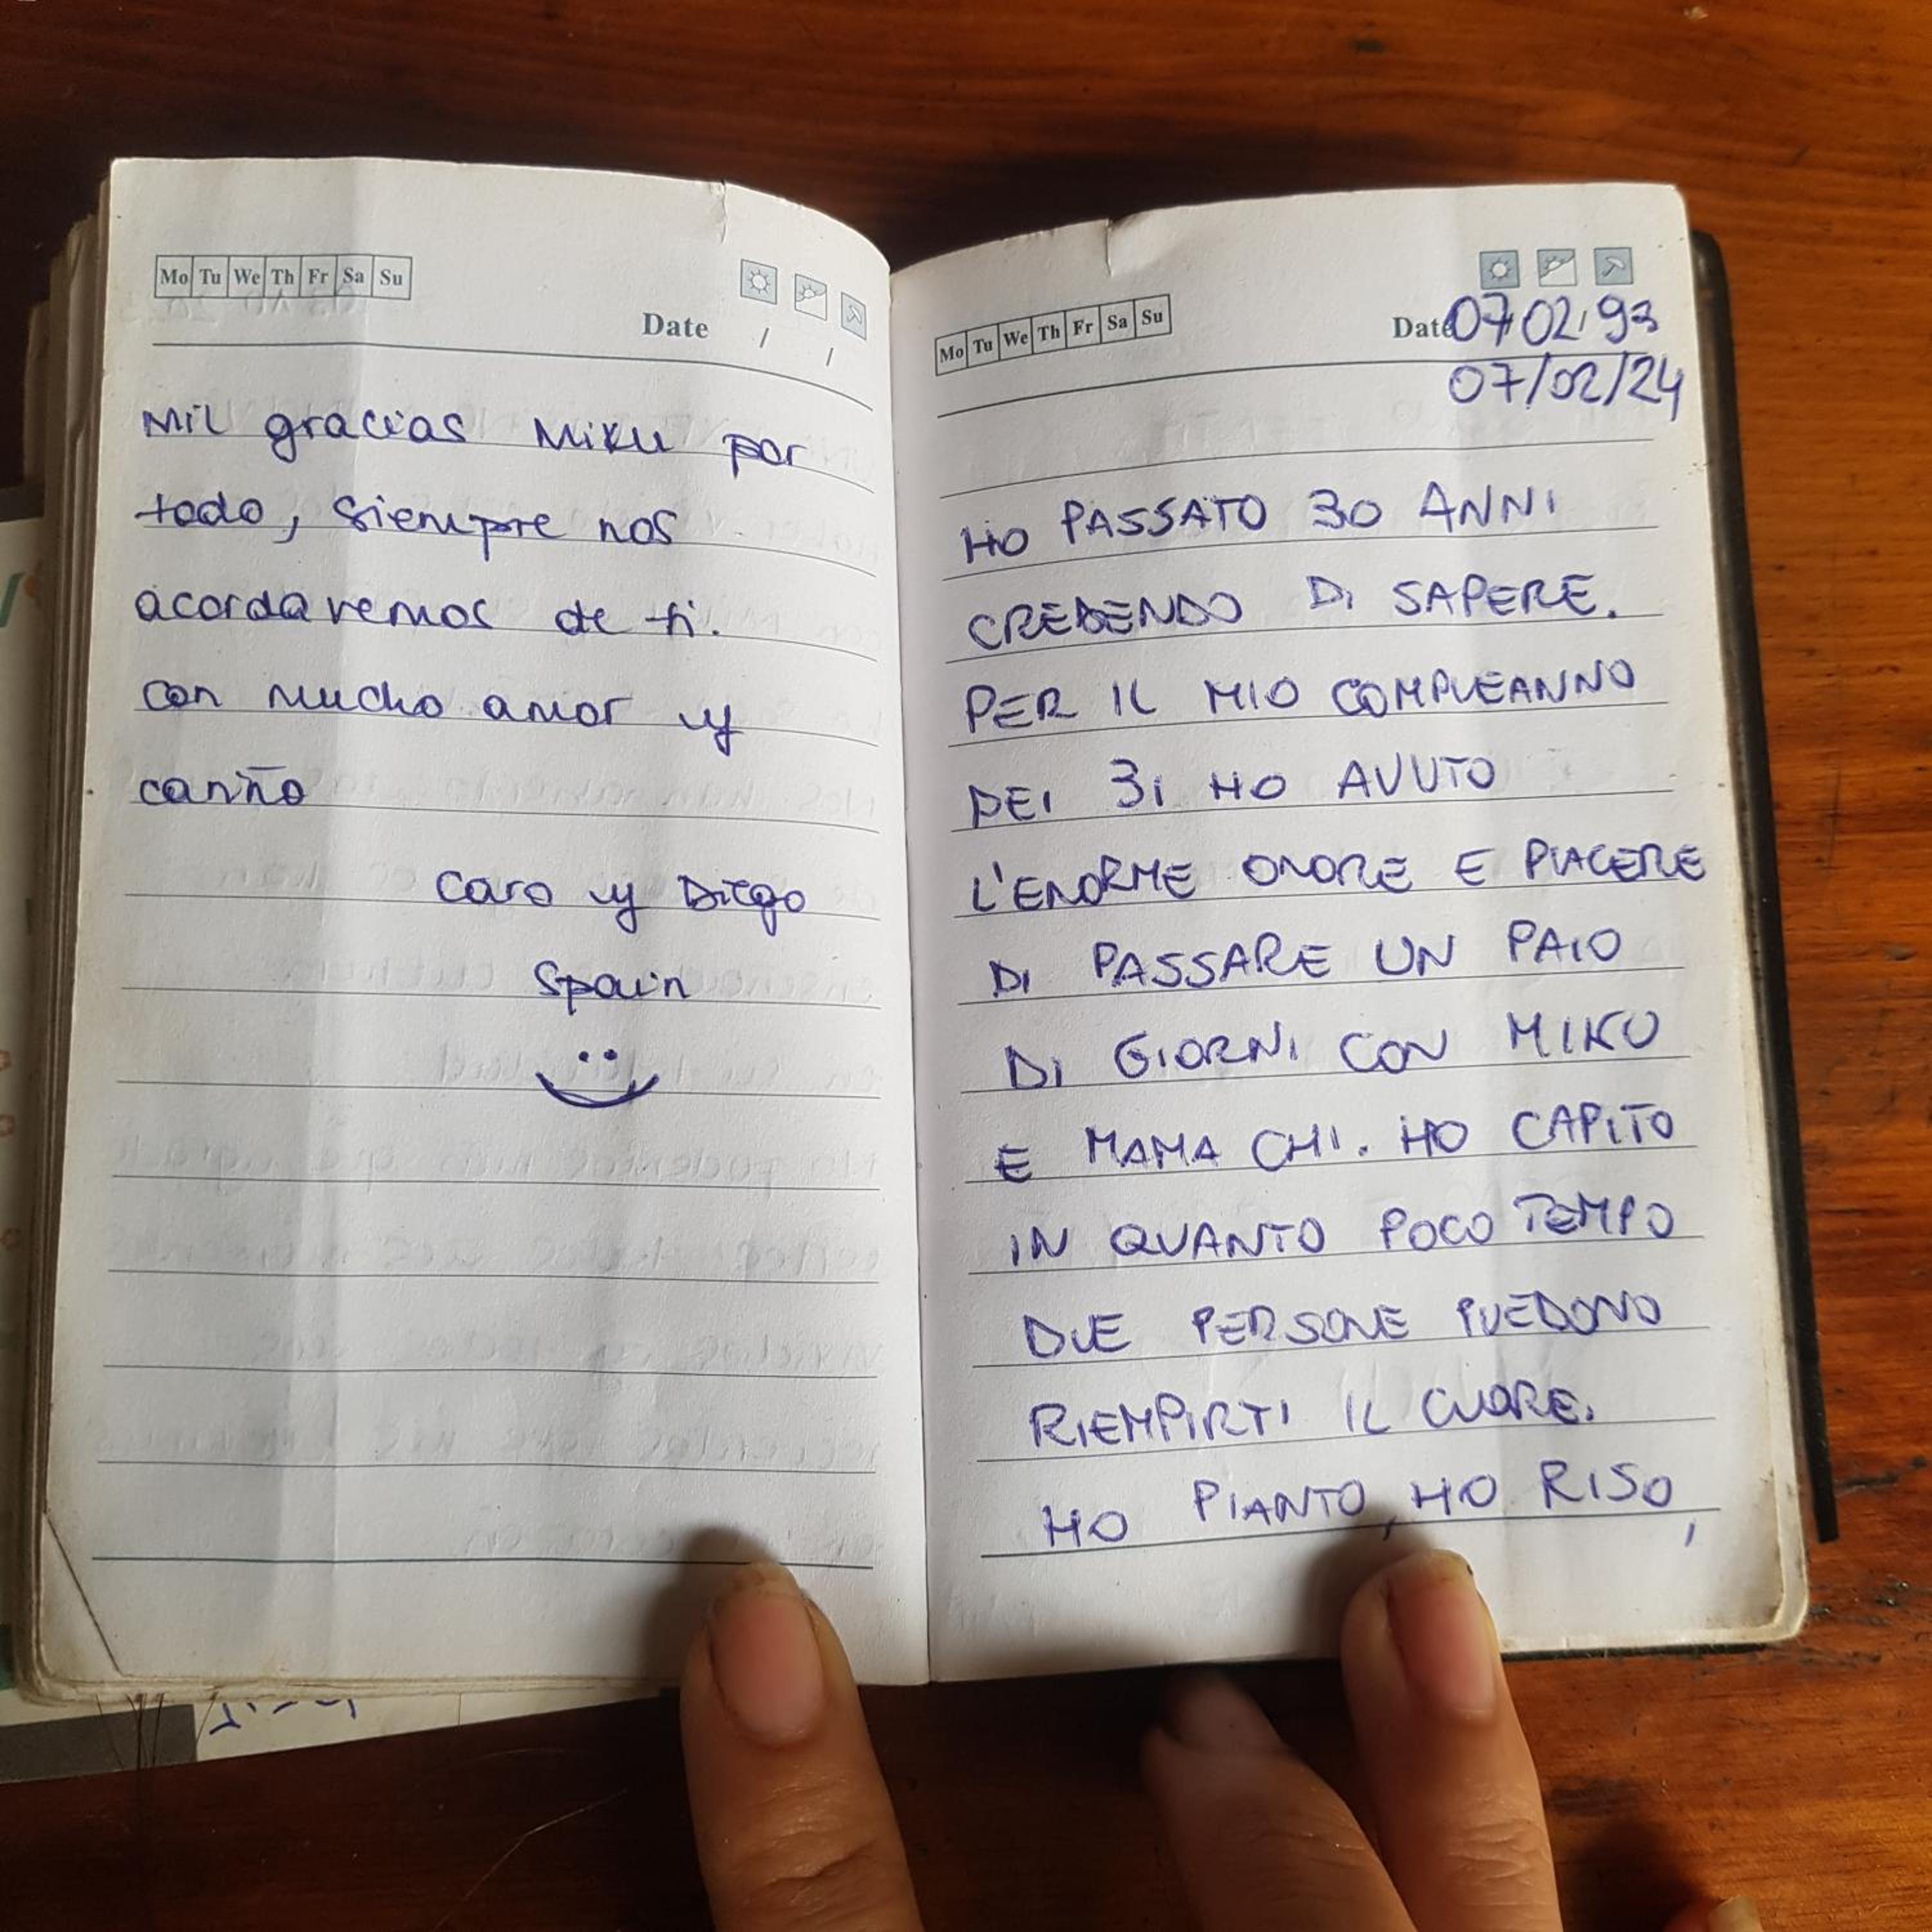 Mo Tu We Th Fr Sa Su
Date / /
Mil gracias Miku por
todo, siempre nos
acordaremos de ti.
con mucho amor y
cariño
Caro y Diego
Spain
Mo Tu We Th Fr Sa Su
Date 07 02/93
07/02/24
HO PASSATO 30 ANNI
CREDENDO DI SAPERE.
PER IL MIO COMPLEANNO
DEI 31 HO AVUTO
L'ENORME ONORE E PIACERE
DI PASSARE UN PAIO
DI GIORNI CON MIKU
E MAMA CHI. HO CAPITO
IN QUANTO POCO TEMPO
DUE PERSONE PUEDONO
RIEMPIRTI IL CUORE.
HO PIANTO, HO RISO,